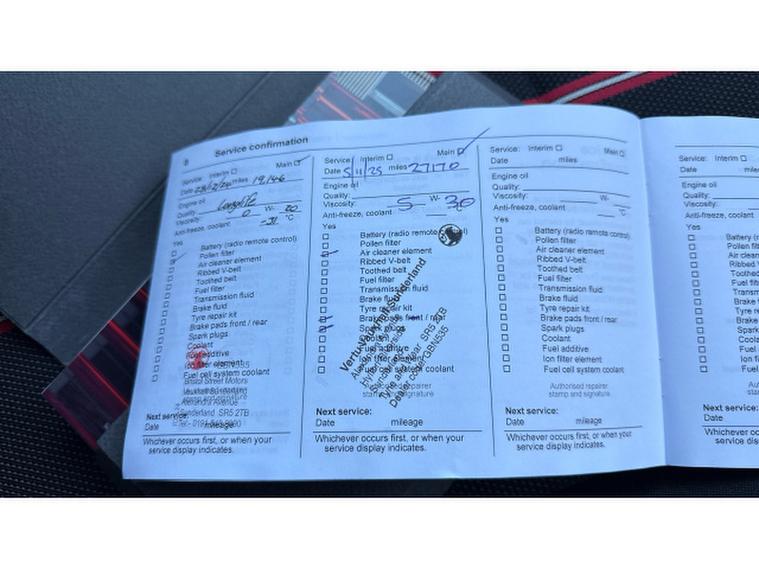 8 Service confirmation
Service: Interim Main
Date miles 19,146
Engine oil
Quality: Longlife
Viscosity: 0 W- 20
Anti-freeze, coolant -31 °C
Yes
Battery (radio remote control)
Pollen filter
Air cleaner element
Ribbed V-belt
Toothed belt
Fuel filter
Transmission fluid
Brake fluid
Tyre repair kit
Brake pads front / rear
Spark plugs
Coolant
Fuel additive
Ion filter element
Fuel cell system coolant
Bristol Street Motors
Sunderland SR5 2TB
Next service:
Date mileage
Whichever occurs first, or when your
service display indicates.
Service: Interim Main
Date 5/11/25 miles 27170
Engine oil
Quality:
Viscosity: 5 W- 30
Anti-freeze, coolant
Yes
Battery (radio remote control)
Pollen filter
Air cleaner element
Ribbed V-belt
Toothed belt
Fuel filter
Transmission fluid
Brake fluid
Tyre repair kit
Brake pads front / rear
Spark plugs
Coolant
Fuel additive
Ion filter element
Fuel cell system coolant
Sunderland
SR5 2TB
Authorised repairer
stamp and signature
Next service:
Date mileage
Whichever occurs first, or when your
service display indicates.
Service: Interim Main
Date miles
Engine oil
Quality:
Viscosity: W-
Anti-freeze, coolant °C
Yes
Battery (radio remote control)
Pollen filter
Air cleaner element
Ribbed V-belt
Toothed belt
Fuel filter
Transmission fluid
Brake fluid
Tyre repair kit
Brake pads front / rear
Spark plugs
Coolant
Fuel additive
Ion filter element
Fuel cell system coolant
Authorised repairer
stamp and signature
Next service:
Date mileage
Whichever occurs first, or when your
service display indicates.
Service: Interim
Date
Engine oil
Quality:
Viscosity:
Anti-freeze, coolant
Yes
Next service:
Date
Whichever
service